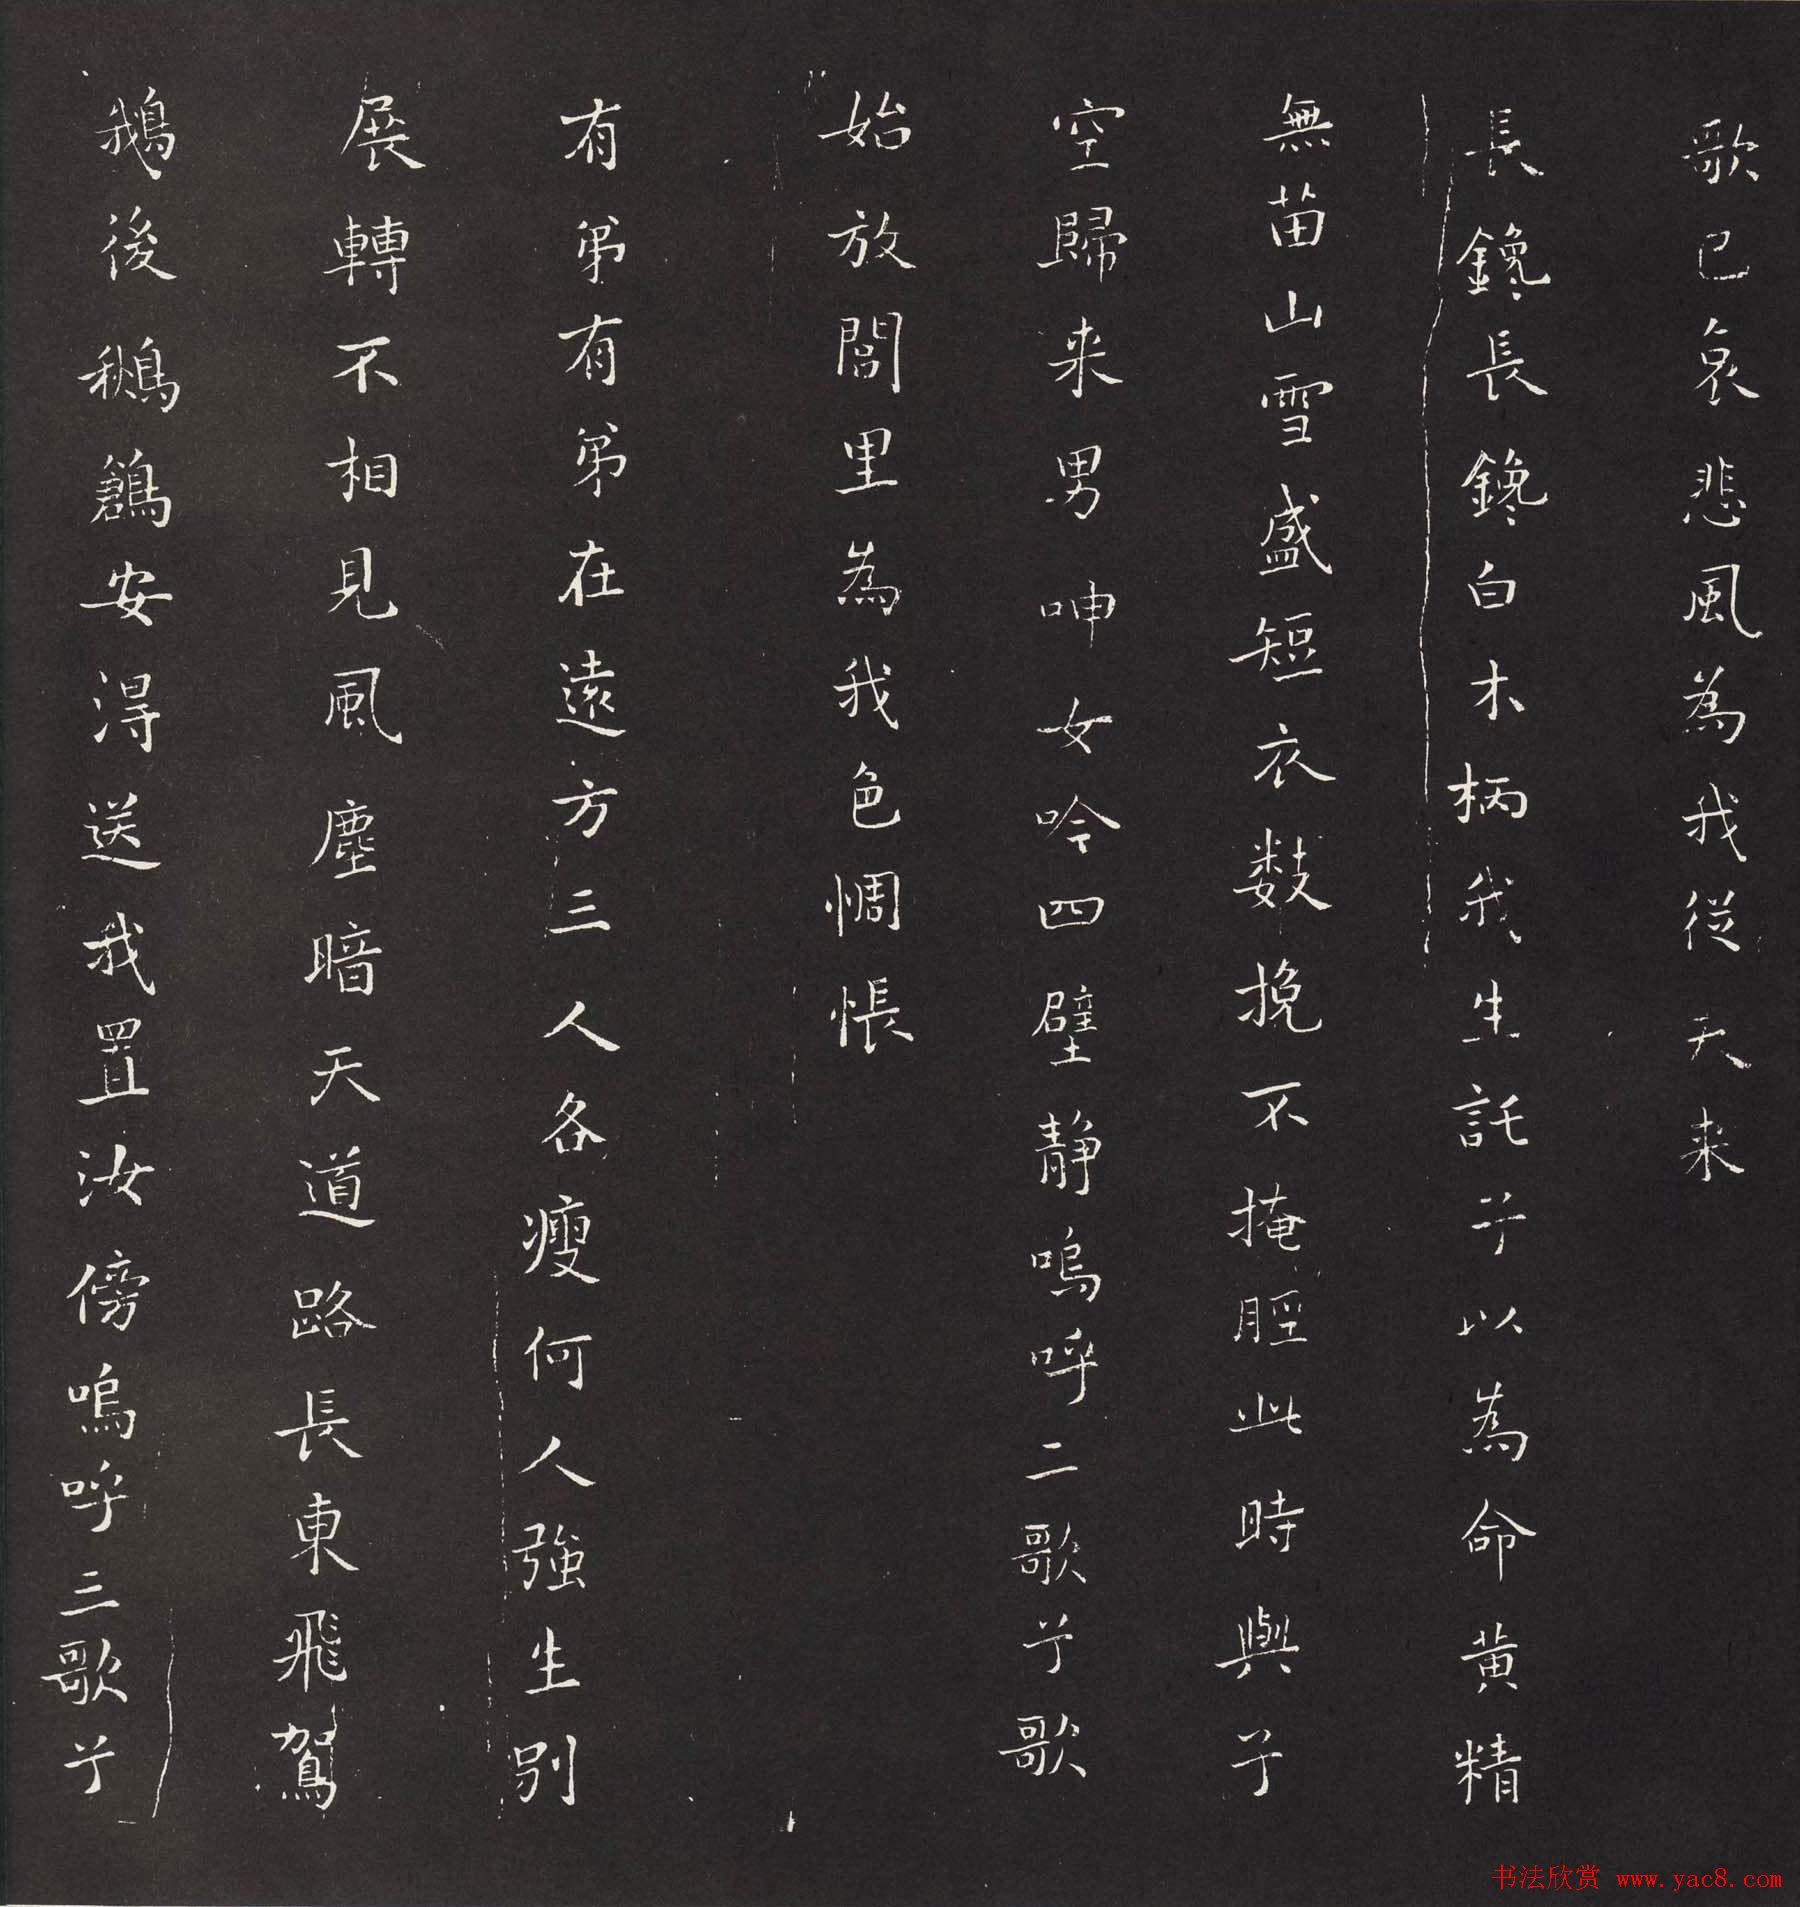 歌已哀悲風為我從天来
長鑱長鑱白木柄我生託子以為命黄精
無苗山雪盛短衣数挽不掩脛此時與子
空歸来男呻女吟四壁静嗚呼二歌兮歌
始放閭里為我色惆悵
有弟有弟在遠方三人各瘦何人強生别
展轉不相見風塵暗天道路長東飛駕
鵝後鶖鶬安得送我置汝傍嗚呼三歌兮
书法欣赏 www.yac8.com